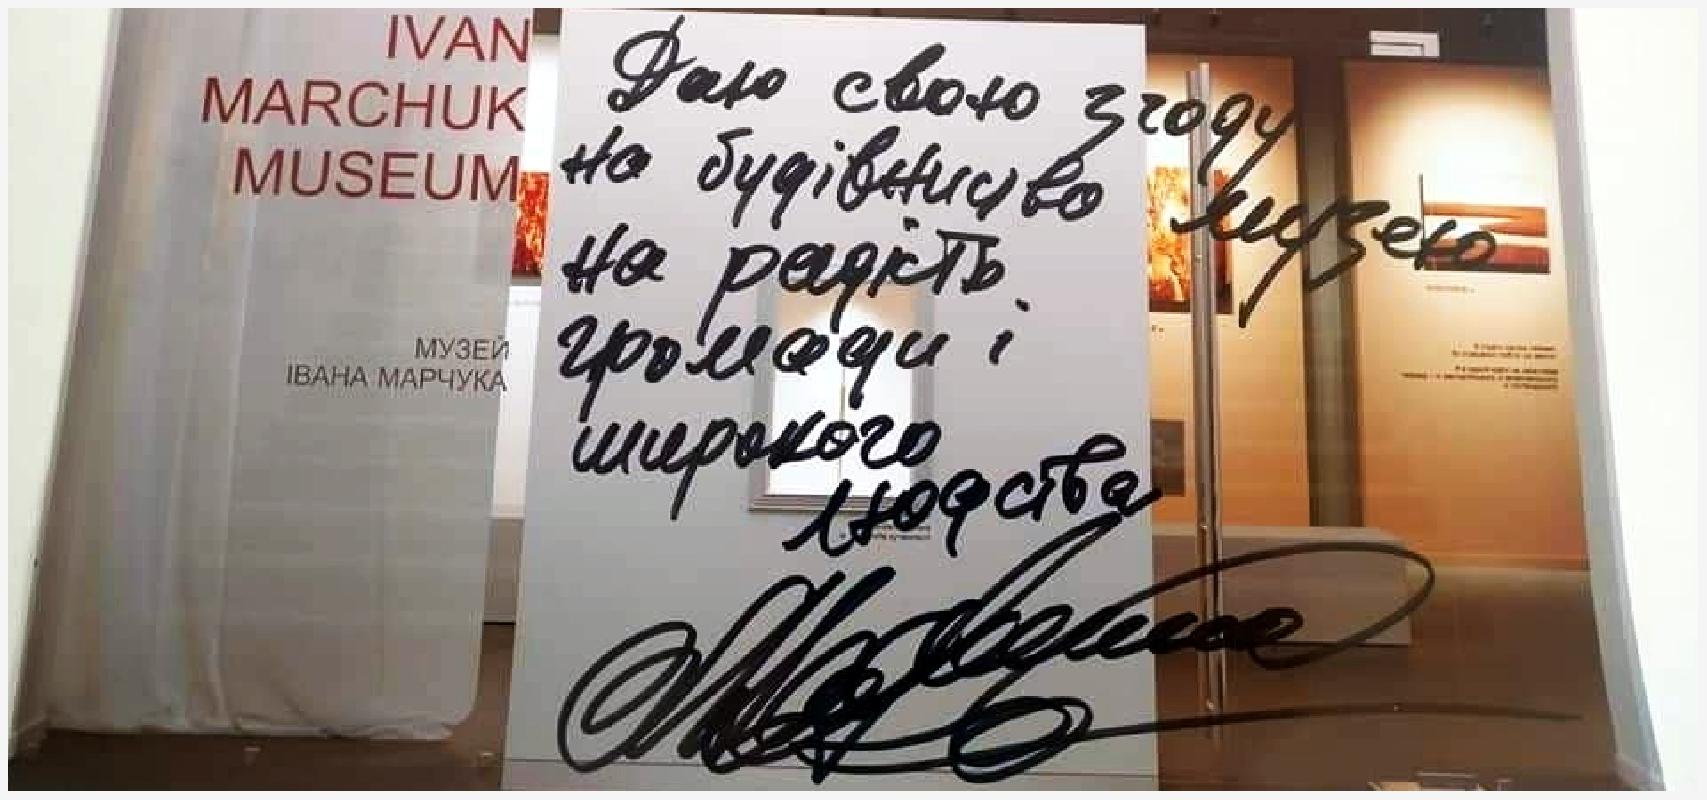 IVAN
MARCHUK
MUSEUM
МУЗЕЙ
ІВАНА МАРЧУКА
Даю свою згоду
на будівництво музею
на радість
громади і
широкого
людства